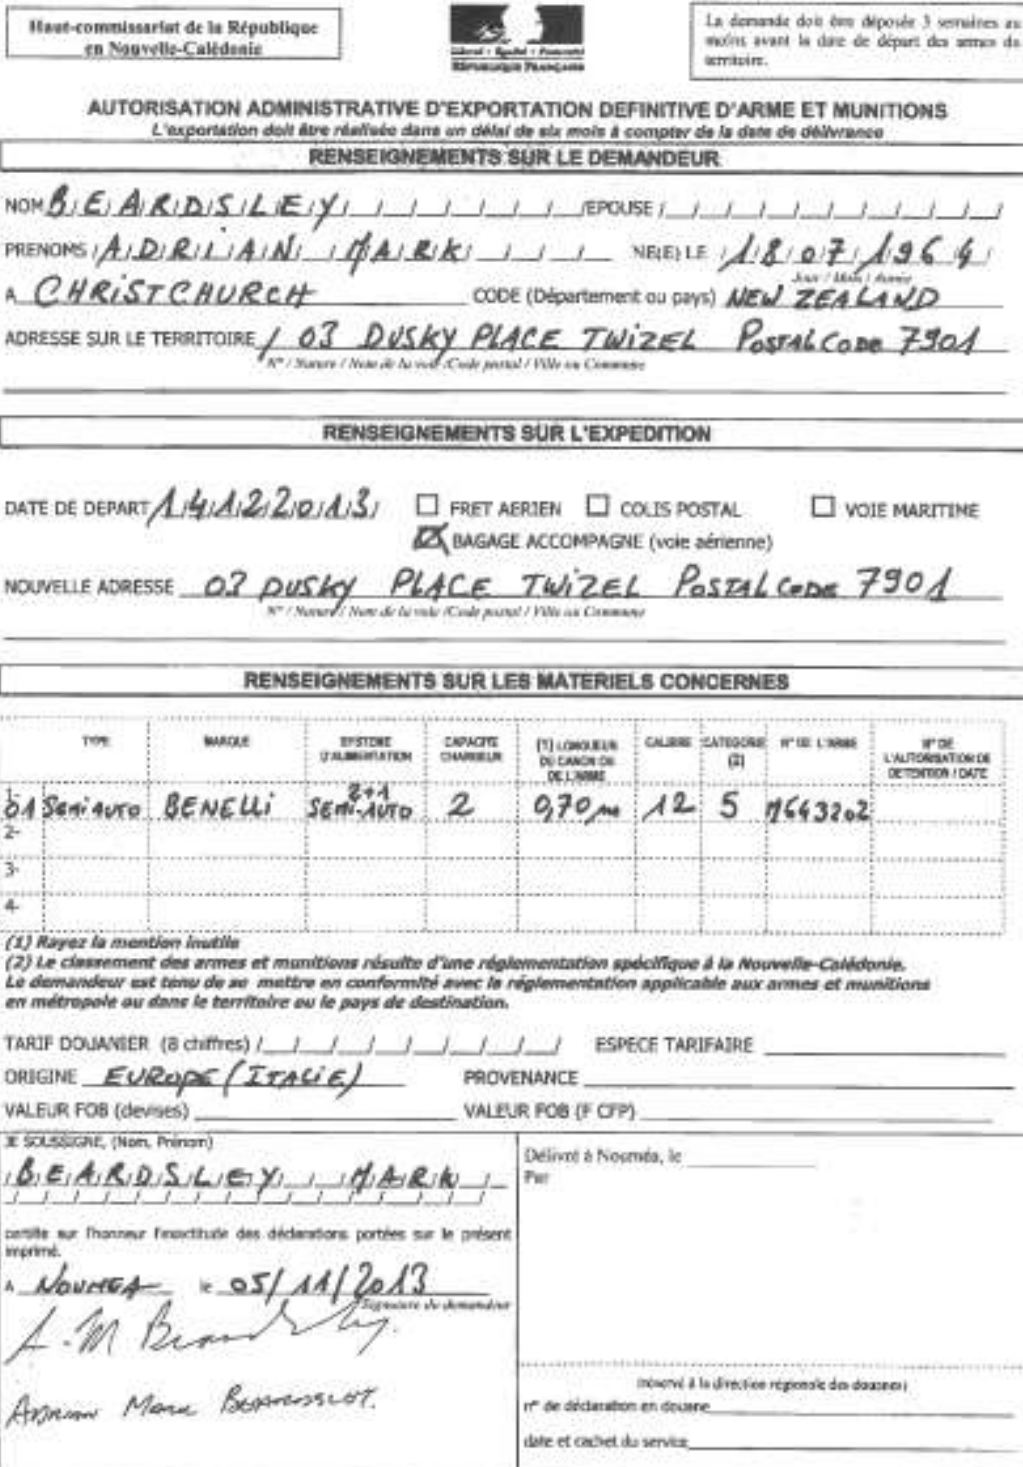 Haut-commissariat de la République
en Nouvelle-Calédonie
Liberté • Égalité • Fraternité
RÉPUBLIQUE FRANÇAISE
La demande doit être déposée 3 semaines au
moins avant la date de départ des armes du
territoire.
AUTORISATION ADMINISTRATIVE D'EXPORTATION DEFINITIVE D'ARME ET MUNITIONS
L'exportation doit être réalisée dans un délai de six mois à compter de la date de délivrance
RENSEIGNEMENTS SUR LE DEMANDEUR
NOM BEARDSLEY /EPOUSE
PRENOMS ADRIAN MARK NE(E) LE 18 07 1964
Jour / Mois / Année
A CHRISTCHURCH CODE (Département ou pays) NEW ZEALAND
ADRESSE SUR LE TERRITOIRE / 03 DUSKY PLACE TWIZEL POSTAL CODE 7901
N° / Nature / Nom de la voie /Code postal / Ville ou Commune
RENSEIGNEMENTS SUR L'EXPEDITION
DATE DE DEPART 14122013 FRET AERIEN COLIS POSTAL VOIE MARITIME
BAGAGE ACCOMPAGNE (voie aérienne)
NOUVELLE ADRESSE 03 DUSKY PLACE TWIZEL POSTAL CODE 7901
N° / Nature / Nom de la voie /Code postal / Ville ou Commune
RENSEIGNEMENTS SUR LES MATERIELS CONCERNES
TYPE MARQUE SYSTEME D'ALIMENTATION CAPACITE CHARGEUR (1) LONGUEUR DU CANON OU DE L'ARME CALIBRE CATEGORIE (2) N° DE L'ARME N° DE L'AUTORISATION DE DETENTION / DATE
1- 01 SEMI AUTO BENELLI 2+1 SEMI-AUTO 2 0,70 m 12 5 M643202
2-
3-
4-
(1) Rayez la mention inutile
(2) Le classement des armes et munitions résulte d'une réglementation spécifique à la Nouvelle-Calédonie.
Le demandeur est tenu de se mettre en conformité avec la réglementation applicable aux armes et munitions
en métropole ou dans le territoire ou le pays de destination.
TARIF DOUANIER (8 chiffres) ESPECE TARIFAIRE
ORIGINE EUROPE (ITALIE) PROVENANCE
VALEUR FOB (devises) VALEUR FOB (F CFP)
JE SOUSSIGNE, (Nom, Prénom)
BEARDSLEY MARK
certifie sur l'honneur l'exactitude des déclarations portées sur le présent
imprimé.
A NOUMEA le 05/11/2013
Signature du demandeur
A-M Beardsley.
ADRIAN MARK
Délivré à Nouméa, le
Par
(réservé à la direction régionale des douanes)
n° de déclaration en douane
date et cachet du service